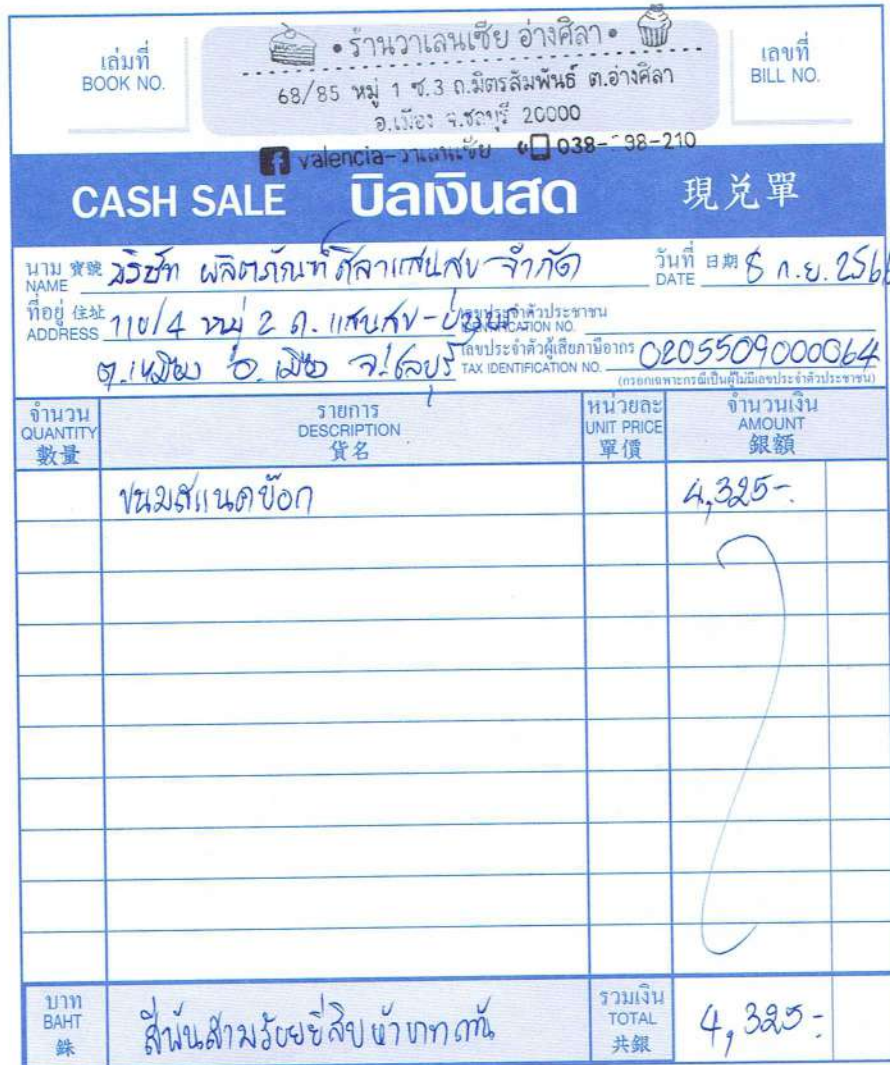 เล่มที่
BOOK NO.
• ร้านวาเลนเซีย อ่างศิลา •
68/85 หมู่ 1 ซ.3 ถ.มิตรสัมพันธ์ ต.อ่างศิลา
อ.เมือง จ.ชลบุรี 20000
valencia-วาเลนเซีย 038- 98-210
เลขที่
BILL NO.
CASH SALE บิลเงินสด 現兌單
นาม 寶號
NAME บริษัท ผลิตภัณฑ์ศิลาแสนสุข จำกัด
วันที่ 日期
DATE 8 ก.ย. 256
ที่อยู่ 住址
ADDRESS 110/4 หมู่ 2 ถ. แสนสุข-
เลขประจำตัวประชาชน
IDENTIFICATION NO.
ต.เหมือง อ.เมือง จ.ชลบุรี
เลขประจำตัวผู้เสียภาษีอากร
TAX IDENTIFICATION NO. 0205509000064
(กรอกเฉพาะกรณีเป็นผู้ไม่มีเลขประจำตัวประชาชน)
จำนวน
QUANTITY
數量
รายการ
DESCRIPTION
貨名
หน่วยละ
UNIT PRICE
單價
จำนวนเงิน
AMOUNT
銀額
ขนมสแนคบ๊อก 4,325-.
บาท
BAHT
銖
สี่พันสามร้อยยี่สิบห้าบาทถ้วน
รวมเงิน
TOTAL
共銀
4,325-